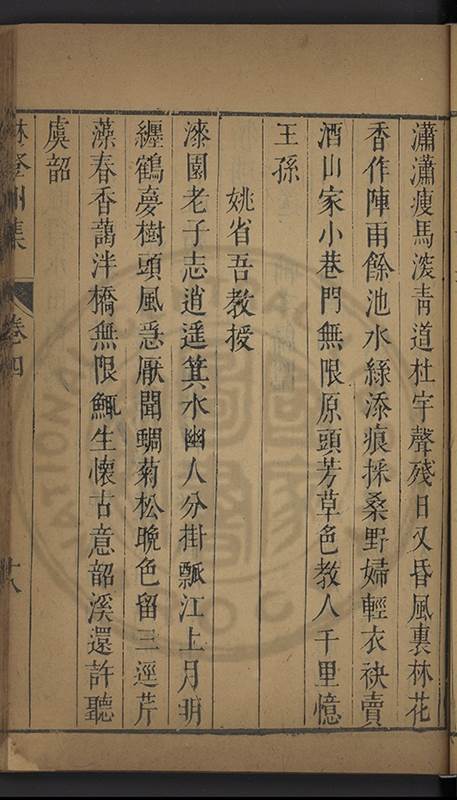 瀟瀟瘦馬滚青道杜宇聲殘日又昏風裏林花
香作陣雨餘池水綠添痕採桑野婦輕衣袂賣
酒山家小巷門無限原頭芳草色教人千里憶
王孫
姚省吾教授
漆園老子志逍遥箕水幽人分掛瓢江上月明
纏鶴夢樹頭風急厭聞蜩菊松晚色留三逕芹
藻春香藹泮橋無限鯫生懷古意韶溪還許聽
虞韶
林登州集
卷四